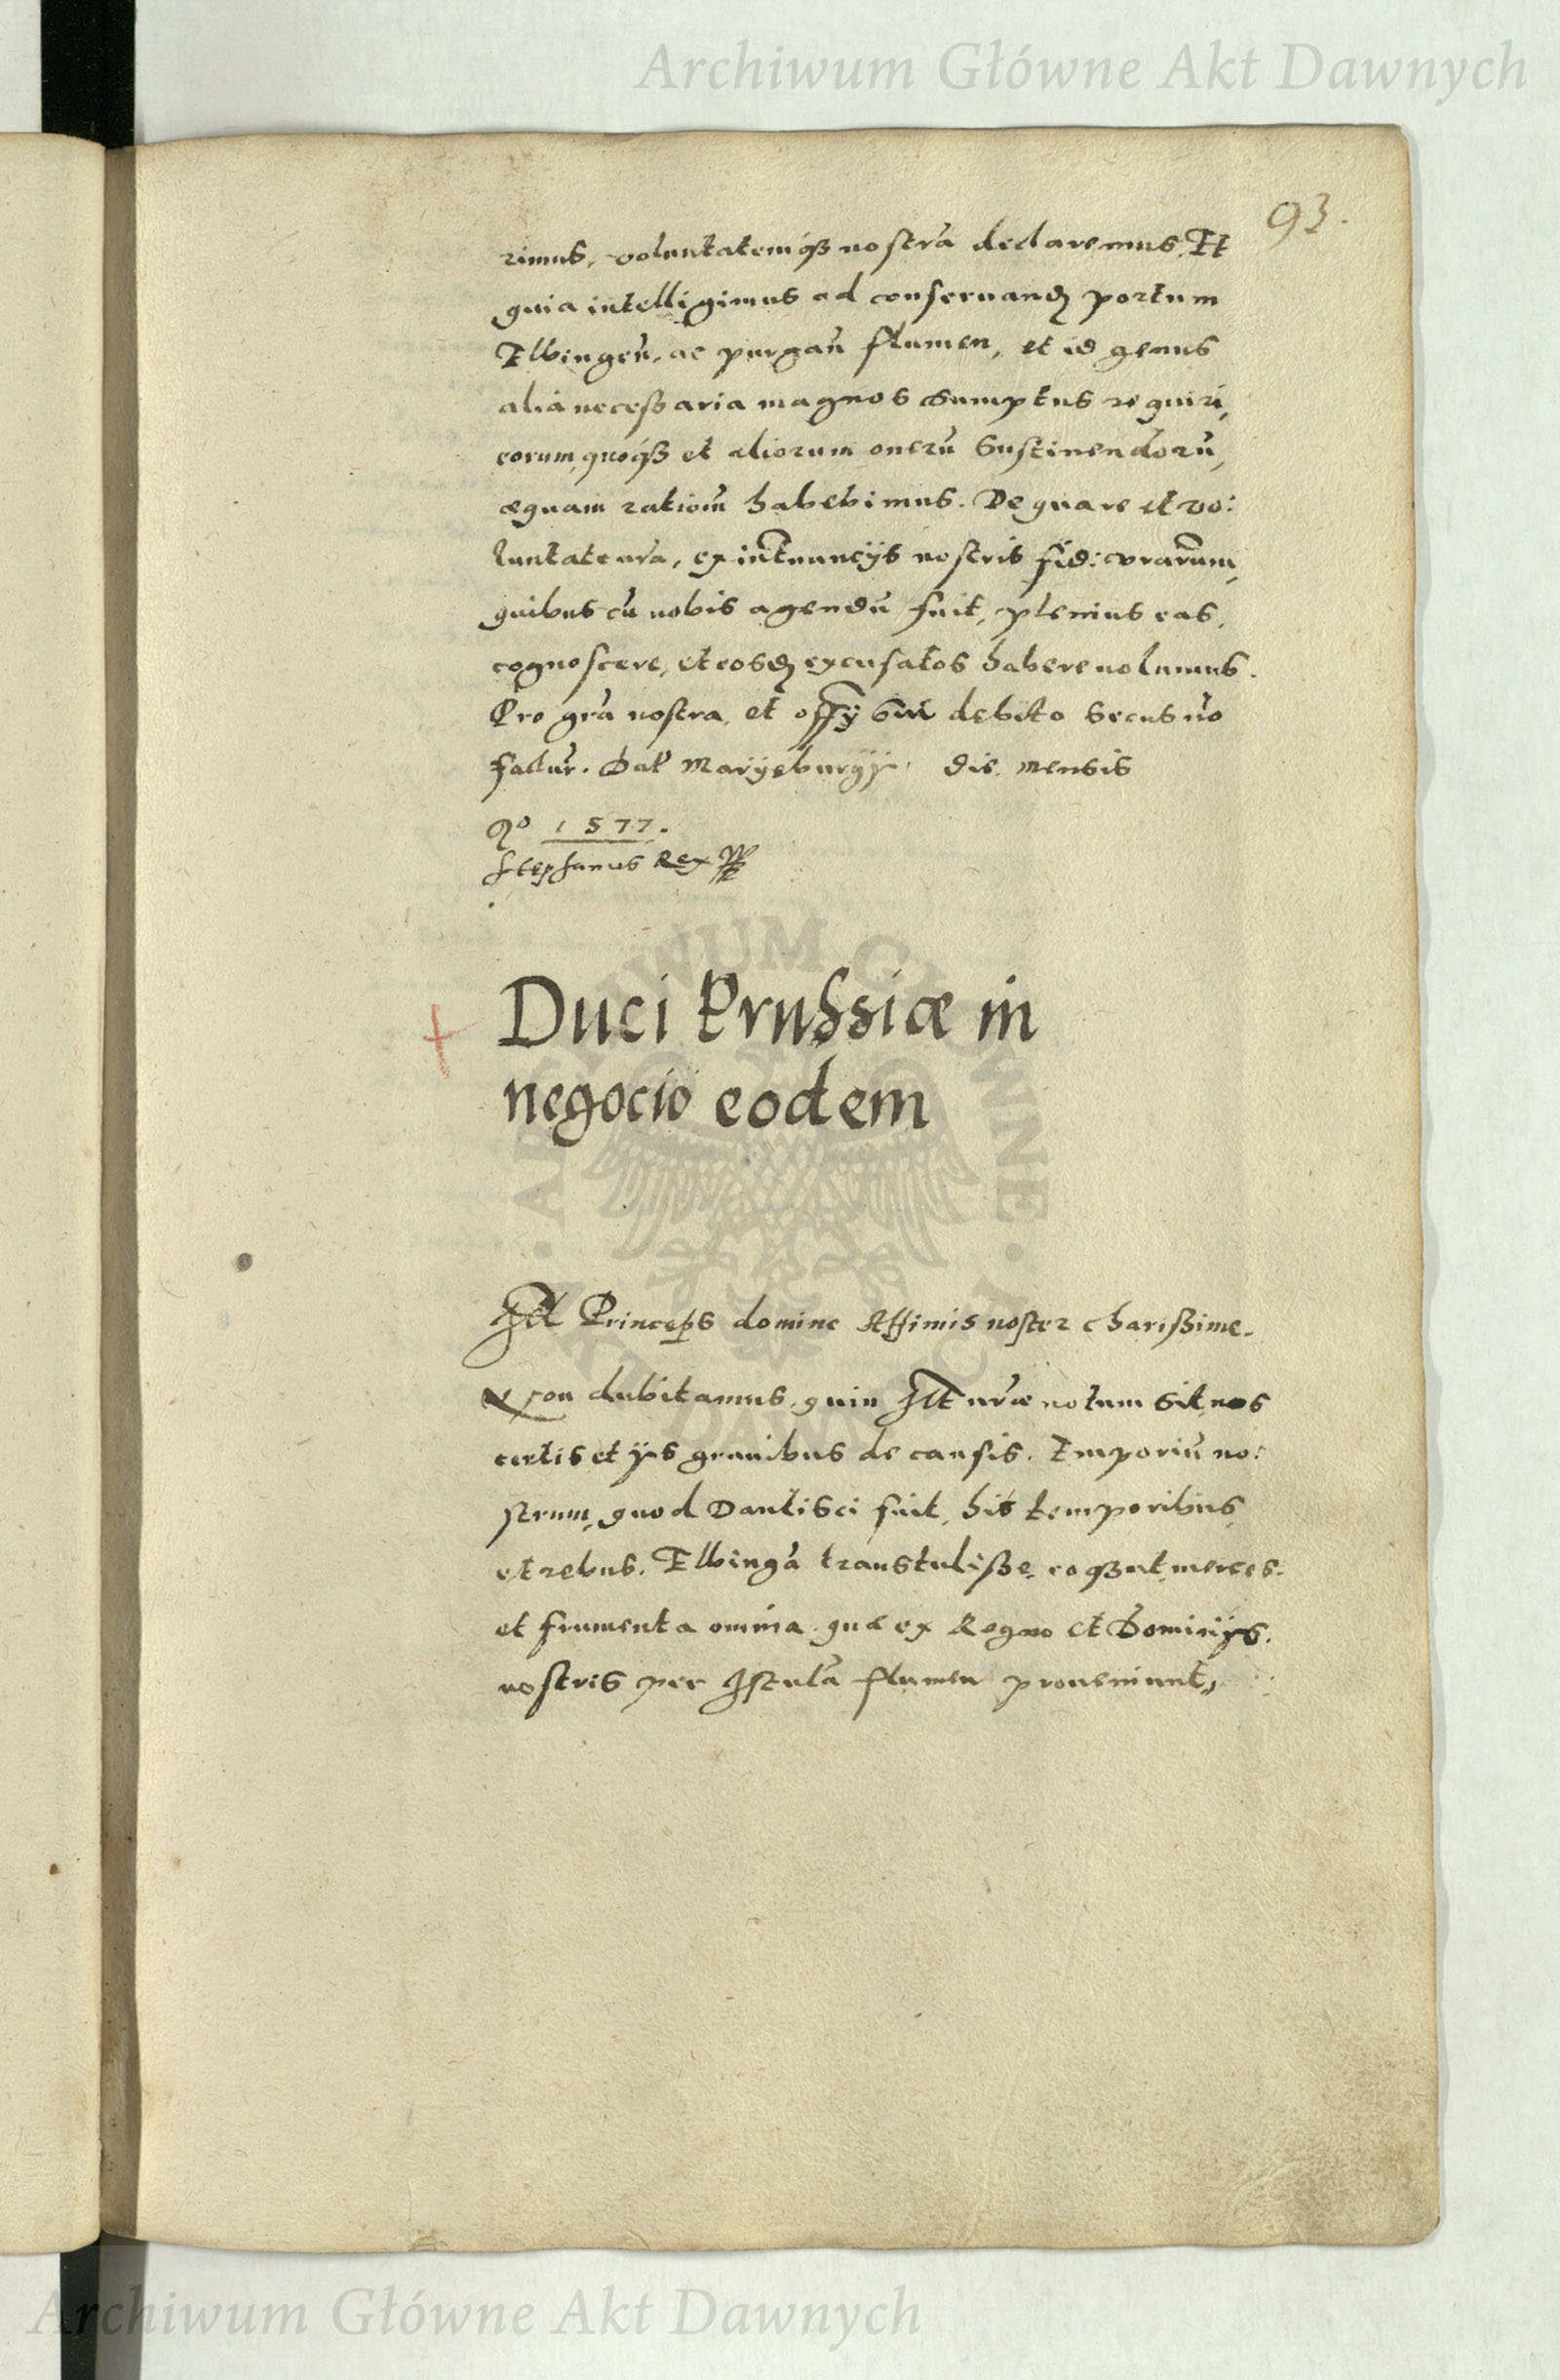 Archiwum Główne Akt Dawnych
93.
rimus, voluntatemq3 nostrã declaremus. Et
quia intelligimus ad conseruand portum
Elbingeñ, ac purgañ flumen, et id genus
alia necessaria magnos sumptus requiri,
eorum, quoq3 et aliorum onerũ sustinendorũ,
æquam rationem habebimus. De qua re et vo:
luntate nrã, ex intnuncijs nostris fid: vrarum,
quibus cũ nobis agendũ fuit, plenius eas,
cognoscere, et eosd excusatos habere uolumus.
Pro grã nostra, et offij sui debito secus nõ
factur. Dat Marijeburgij. die mensis
Aº 1577.
Stephanus Rex
Duci Prussiæ in
negocio eodem
Ill Princeps domine Affinis noster charissime.
Non dubitamus, quin Illt uræ notum sit, nos
certis et ijs grauibus de causis. Emporiũ no:
strum, quod Dantisci fuit, his temporibus
et rebus. Elbingã transtulisse, eoq3 ut merces.
et frumenta omnia quæ ex Regno et Dominijs.
nostris per Istulã flumen proueniunt,
ARCHIWUM GŁÓWNE AKT DAWNYCH
Archiwum Główne Akt Dawnych